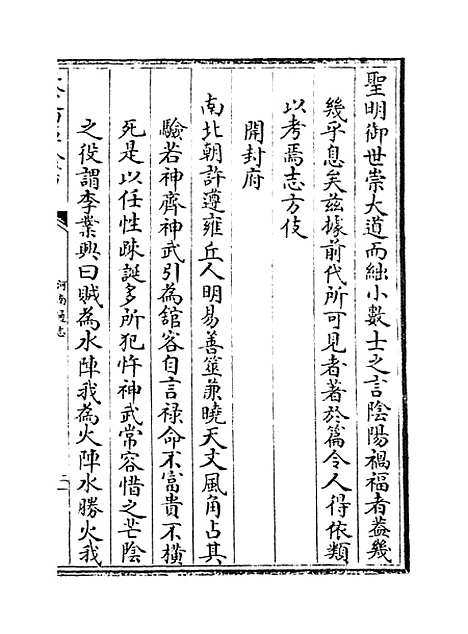 聖明御世崇大道而絀小數士之言陰陽禍福者葢幾
幾乎息矣茲據前代所可見者著於篇令人得依類
以考焉志方伎
開封府
南北朝許遵雍丘人明易善筮兼曉天文風角占其
驗若神齊神武引為舘客自言禄命不富貴不橫
死是以任性疎誕多所犯忤神武常容惜之芒陰
之役謂李業興曰賊為水陣我為火陣水勝火我
河南通志
二